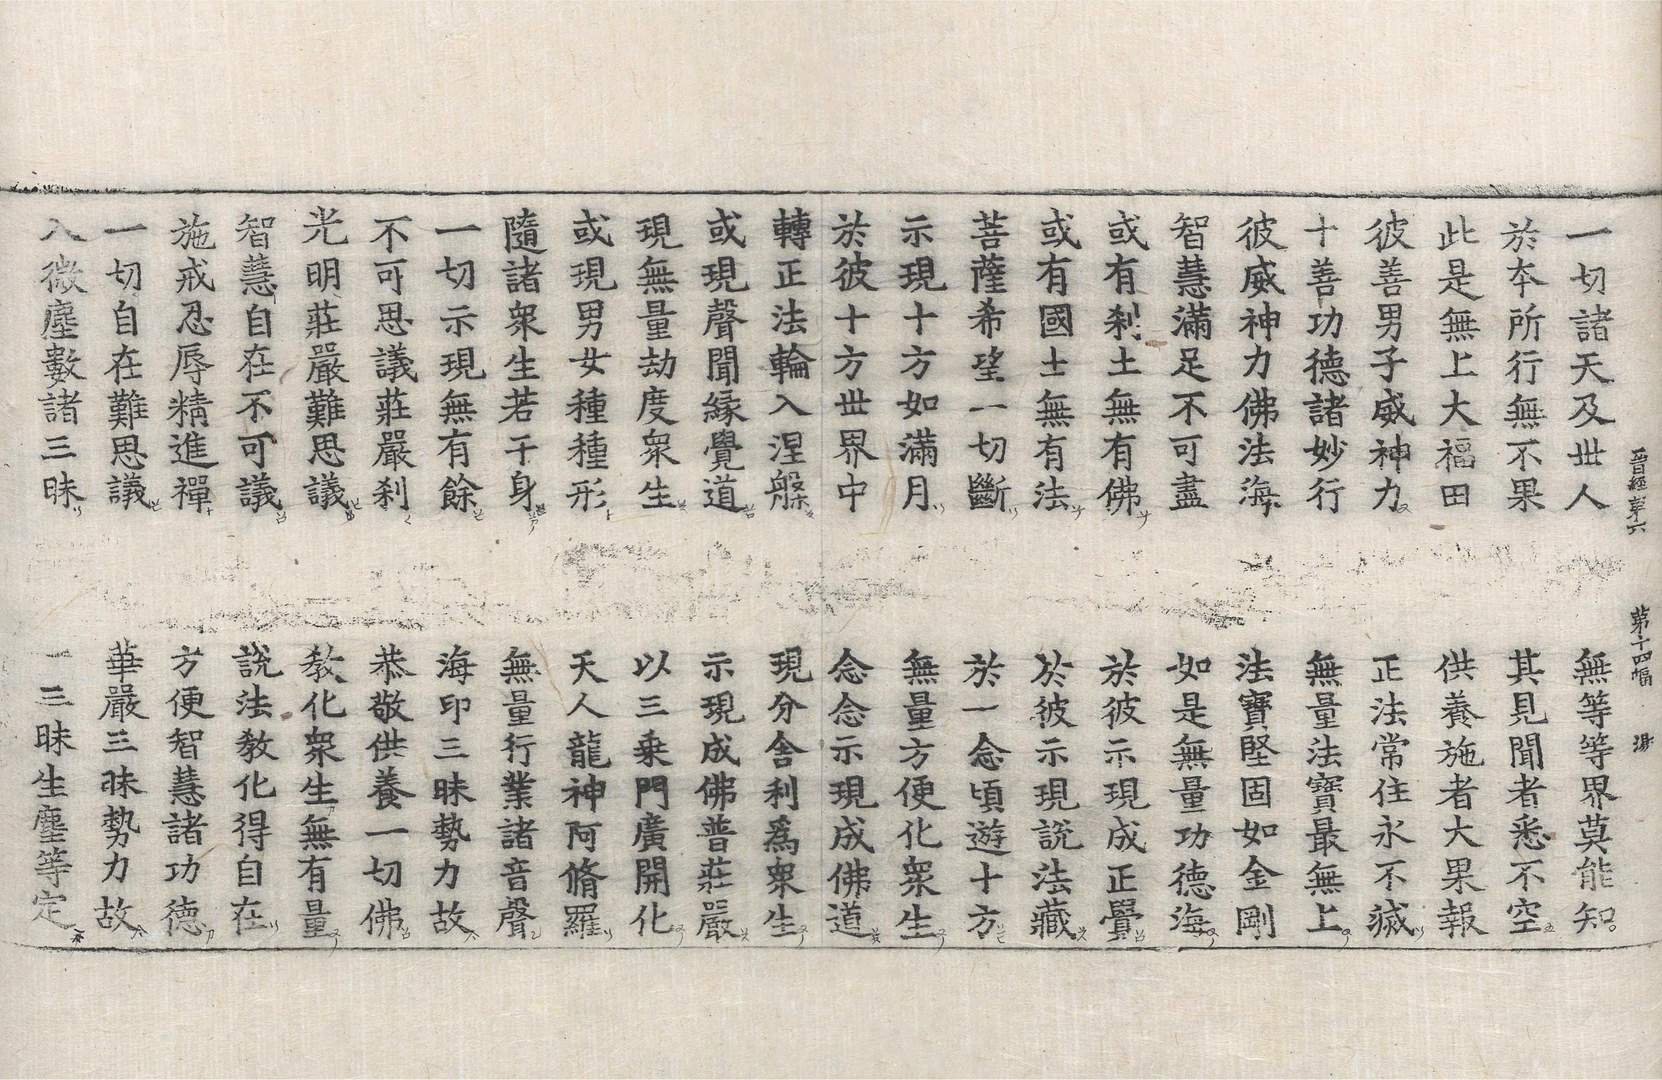 晉經第六 第十四幅 湯
一切諸天及丗人 無等等界莫能知
於本所行無不果 其見聞者悉不空
此是無上大福田 供養施者大果報
彼善男子威神力 正法常住永不滅
十善功德諸妙行 無量法寶最無上
彼威神力佛法海 法寶堅固如金剛
智慧滿足不可盡 如是無量功德海
或有剎土無有佛 於彼示現成正覺
或有國土無有法 於彼示現說法藏
菩薩希望一切斷 於一念頃遊十方
示現十方如滿月 無量方便化衆生
於彼十方丗界中 念念示現成佛道
轉正法輪入涅槃 現分舍利爲衆生
或現聲聞緣覺道 示現成佛普莊嚴
現無量劫度衆生 以三乘門廣開化
或現男女種種形 天人龍神阿脩羅
隨諸衆生若干身 無量行業諸音聲
一切示現無有餘 海印三昧勢力故
不可思議莊嚴剎 恭敬供養一切佛
光明莊嚴難思議 教化衆生無有量
智慧自在不可議 說法教化得自在
施戒忍辱精進禪 方便智慧諸功德
一切自在難思議 華嚴三昧勢力故
入微塵數諸三昧 一三昧生塵等定